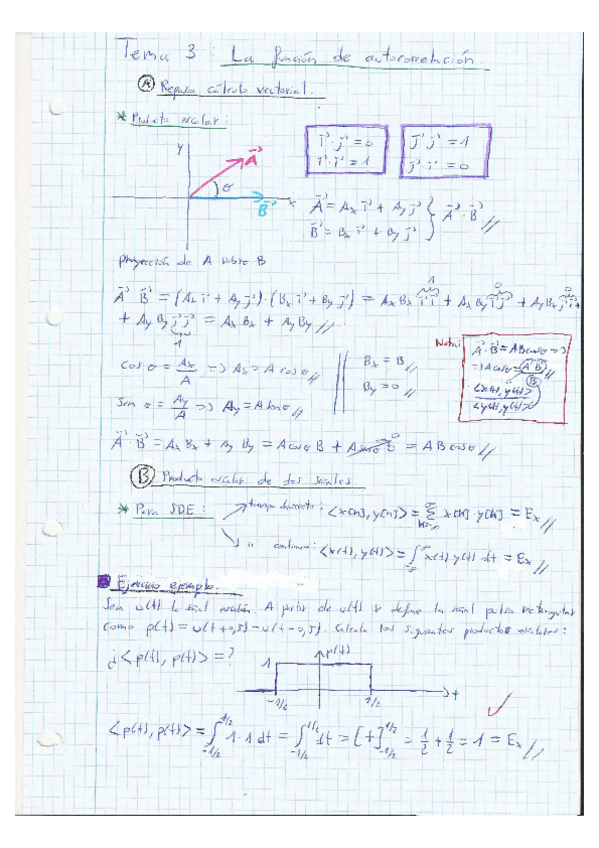 Tema 3: La función de autocorrelación.
Ⓐ Repaso cálculo vectorial.
* Producto escalar:
y
A⃗
θ
B⃗
x
i⃗·j⃗ = 0
i⃗·i⃗ = 1
j⃗·j⃗ = 1
j⃗·i⃗ = 0
A⃗ = Ax i⃗ + Ay j⃗ } A⃗·B⃗ //
B⃗ = Bx i⃗ + By j⃗
proyección de A sobre B
A⃗·B⃗ = (Ax i⃗ + Ay j⃗)·(Bx i⃗ + By j⃗) = Ax Bx i⃗ i⃗ + Ax By i⃗ j⃗ + Ay Bx j⃗ i⃗ +
1 0 0
+ Ay By j⃗ j⃗ = Ax Bx + Ay By //
1
cos θ = Ax/A => Ax = A cos θ //
sen θ = Ay/A => Ay = A sen θ //
Bx = B //
By = 0 //
Nota:
A⃗·B⃗ = AB cos θ =>
=> A cos θ = A⃗·B⃗ / B //
<x(t), y(t)>
<y(t), y(t)>
A⃗·B⃗ = Ax Bx + Ay By = A cos θ B + A sen θ · 0 = AB cos θ //
0
Ⓑ Producto escalar de dos señales
* Para SDE:
tiempo discreto: <x[n], y[n]> = Σ x[k]·y[k] = Ex //
" continuo: <x(t), y(t)> = ∫ x(t) y(t) dt = Ex //
Ejercicio ejemplo.
Sea u(t) la señal escalón. A partir de u(t) se define la señal pulso rectangular
como p(t) = u(t+0,5) - u(t-0,5). Calcula los siguientes productos escalares:
¿<p(t), p(t)> = ?
p(t)
1
-1/2
1/2
t
<p(t), p(t)> = ∫_{-1/2}^{1/2} 1·1 dt = ∫_{-1/2}^{1/2} dt = [t]_{-1/2}^{1/2} = 1/2 + 1/2 = 1 = Ex //